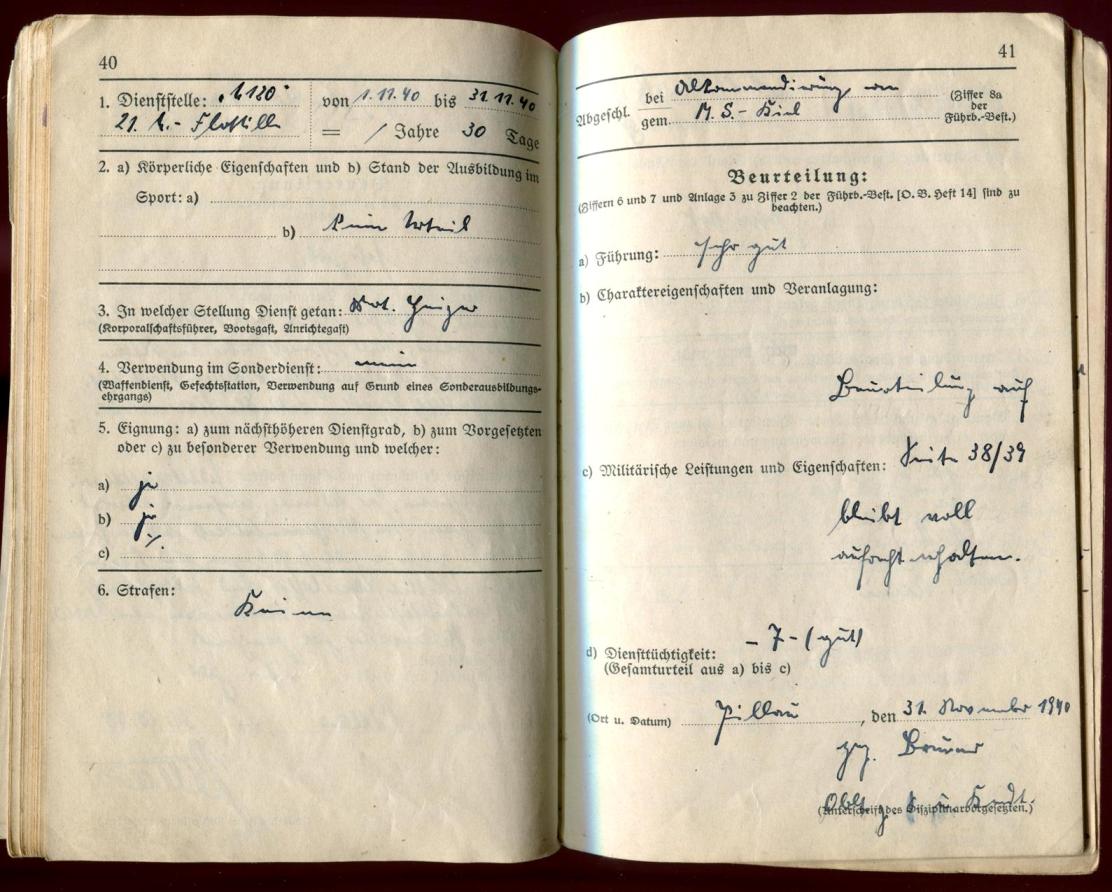 40
1. Dienststelle:
21. U.-Flottille
von 1.11.40 bis 31.11.40
= / Jahre 30 Tage
2. a) Körperliche Eigenschaften und b) Stand der Ausbildung im
Sport: a)
b) kein Urteil
3. In welcher Stellung Dienst getan:
(Korporalschaftsführer, Bootsgast, Anrichtegast)
4. Verwendung im Sonderdienst: nein
(Waffendienst, Gefechtsstation, Verwendung auf Grund eines Sonderausbildungs-
ehrgangs)
5. Eignung: a) zum nächsthöheren Dienstgrad, b) zum Vorgesetzten
oder c) zu besonderer Verwendung und welcher:
a) ja
b) ja
c) ./.
6. Strafen:
Keine
41
Abgeschl. bei Abkommandierung von
gem. M.S.-Kiel
(Ziffer 8a
der
Führb.-Best.)
Beurteilung:
(Ziffern 6 und 7 und Anlage 3 zu Ziffer 2 der Führb.-Best. [O. B. Heft 14] sind zu
beachten.)
a) Führung: sehr gut
b) Charaktereigenschaften und Veranlagung:
Beurteilung auf
c) Militärische Leistungen und Eigenschaften: Seite 38/39
bleibt voll
aufrecht erhalten.
d) Diensttüchtigkeit: – 7 – (gut)
(Gesamturteil aus a) bis c)
(Ort u. Datum) Pillau, den 31. November 1940
gez.
Oblt. z. S. u. Kmdt.
(Unterschrift des Disziplinarvorgesetzten.)